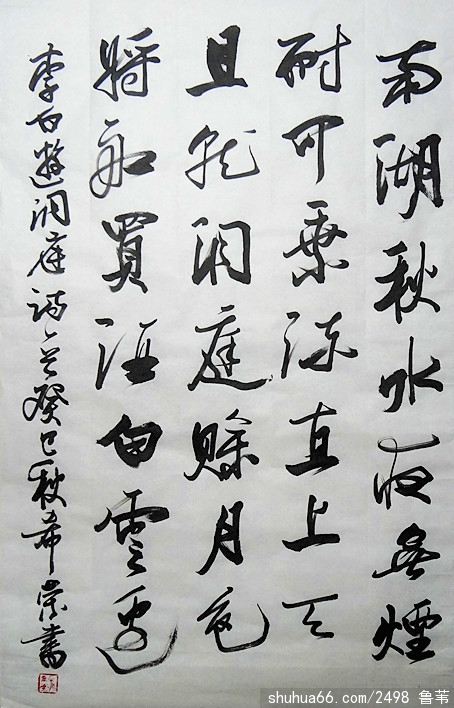 南湖秋水夜無煙
耐可乘流直上天
且就洞庭賒月色
將船買酒白雲邊
李白遊洞庭詩意癸巳秋希崇書
shuhua66.com/2498 鲁苇